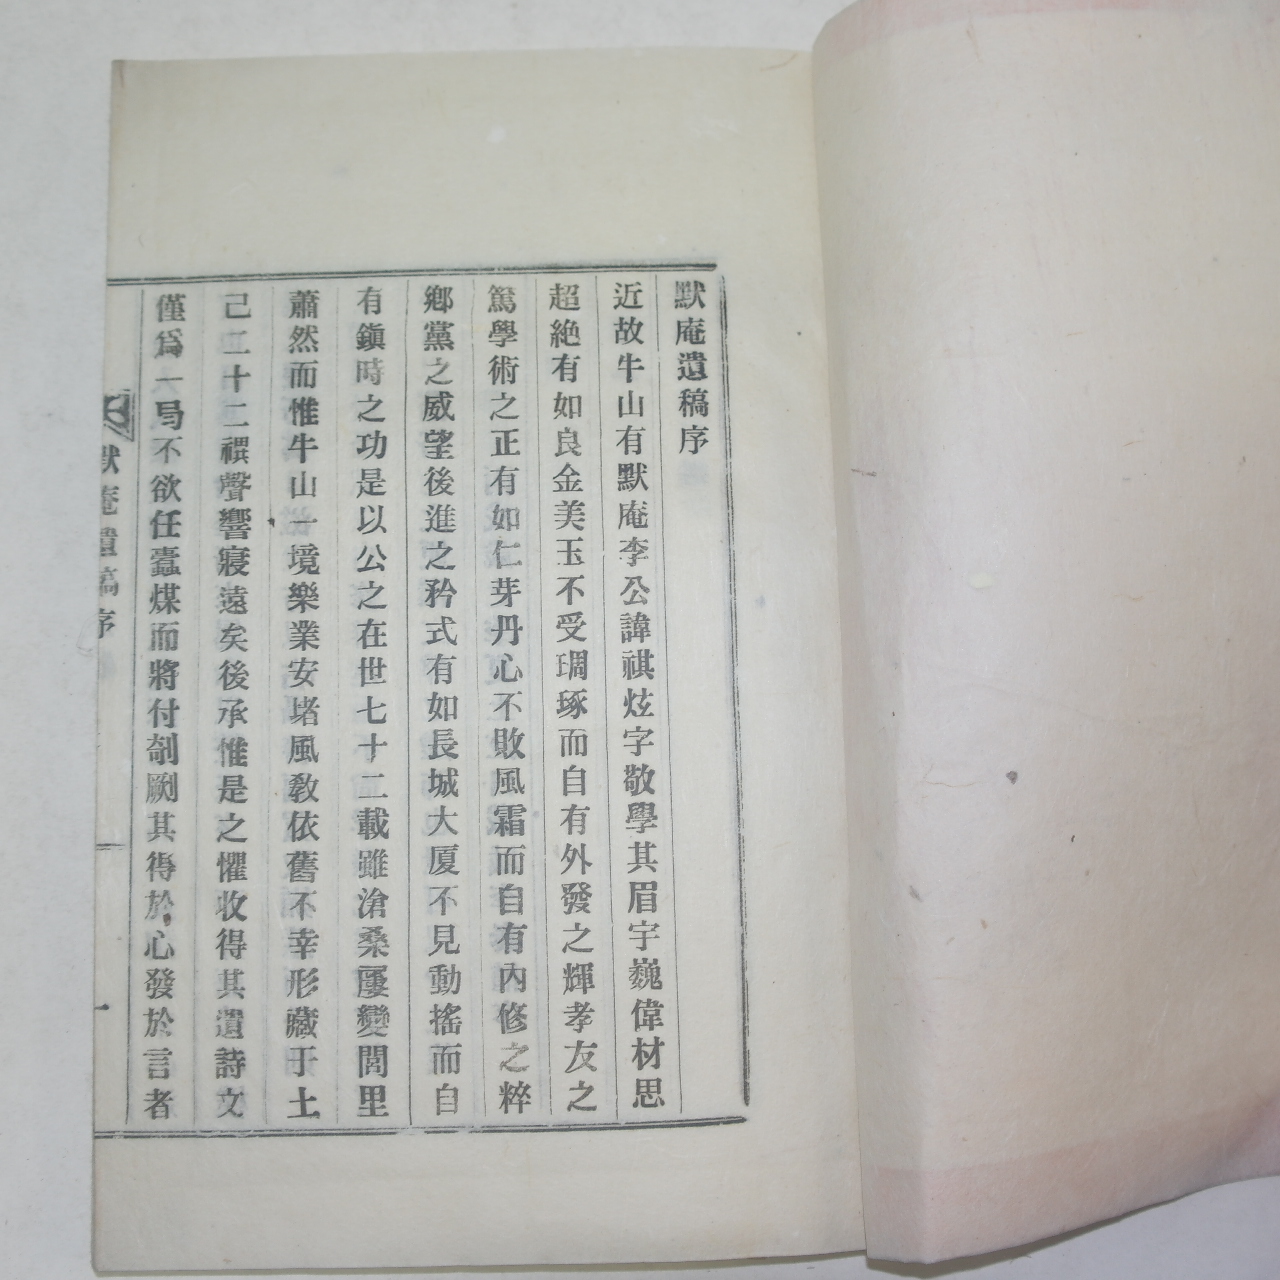 默庵遺稿序
近故牛山有默庵李公諱祺炫字敬學其眉宇巍偉材思
超絶有如良金美玉不受琱琢而自有外發之輝孝友之
篤學術之正有如仁芽丹心不敗風霜而自有內修之粹
鄕黨之威望後進之矜式有如長城大厦不見動搖而自
有鎭時之功是以公之在世七十二載雖滄桑屢變閭里
蕭然而惟牛山一境樂業安堵風敎依舊不幸形藏于土
己二十二禩聲響寢遠矣後承惟是之懼收得其遺詩文
僅爲一局不欲任蠹煤而將付剞劂其得於心發於言者
默庵遺稿序
一